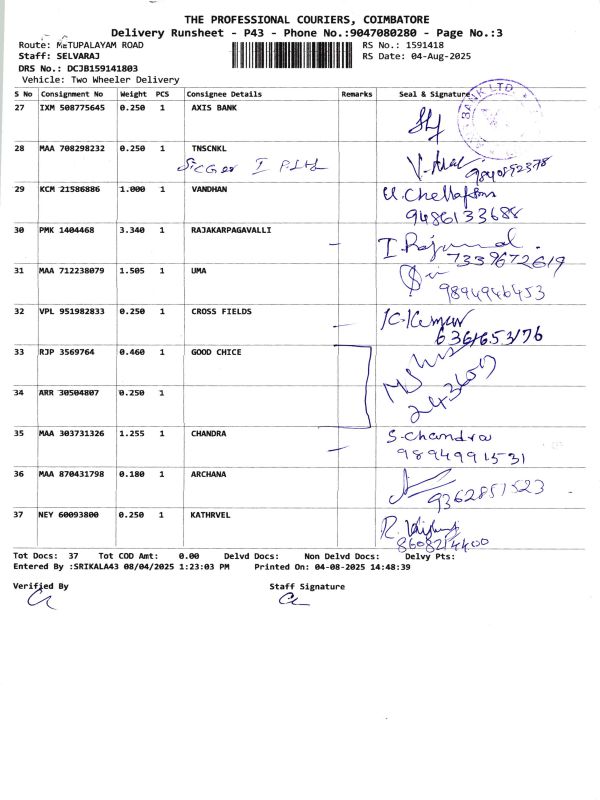 THE PROFESSIONAL COURIERS, COIMBATORE
Delivery Runsheet - P43 - Phone No.:9047080280 - Page No.:3
Route: METUPALAYAM ROAD RS No.: 1591418
Staff: SELVARAJ RS Date: 04-Aug-2025
DRS No.: DCJB159141803
Vehicle: Two Wheeler Delivery
S No Consignment No Weight PCS Consignee Details Remarks Seal & Signature
27 IXM 508775645 0.250 1 AXIS BANK
BANK LTD
28 MAA 708298232 0.250 1 TNSCNKL
9840892378
29 KCM 21586886 1.000 1 VANDHAN
9486133688
30 PMK 1404468 3.340 1 RAJAKARPAGAVALLI
7339672619
31 MAA 712238079 1.505 1 UMA
9894946453
32 VPL 951982833 0.250 1 CROSS FIELDS K. Kumar
6361653176
33 RJP 3569764 0.460 1 GOOD CHICE
34 ARR 30504807 0.250 1
35 MAA 303731326 1.255 1 CHANDRA S. Chandra
9894991531
36 MAA 870431798 0.180 1 ARCHANA
9362851523
37 NEY 60093800 0.250 1 KATHRVEL
8608214400
Tot Docs: 37 Tot COD Amt: 0.00 Delvd Docs: Non Delvd Docs: Delvy Pts:
Entered By :SRIKALA43 08/04/2025 1:23:03 PM Printed On: 04-08-2025 14:48:39
Verified By Staff Signature